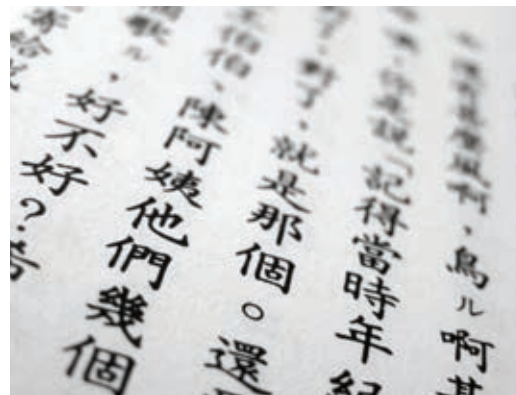 風啊，鳥ㄦ啊
你是說「記得當時年紀
對了，就是那個。還
伯伯、陳阿姨他們幾個
歌ㄦ，好不好？